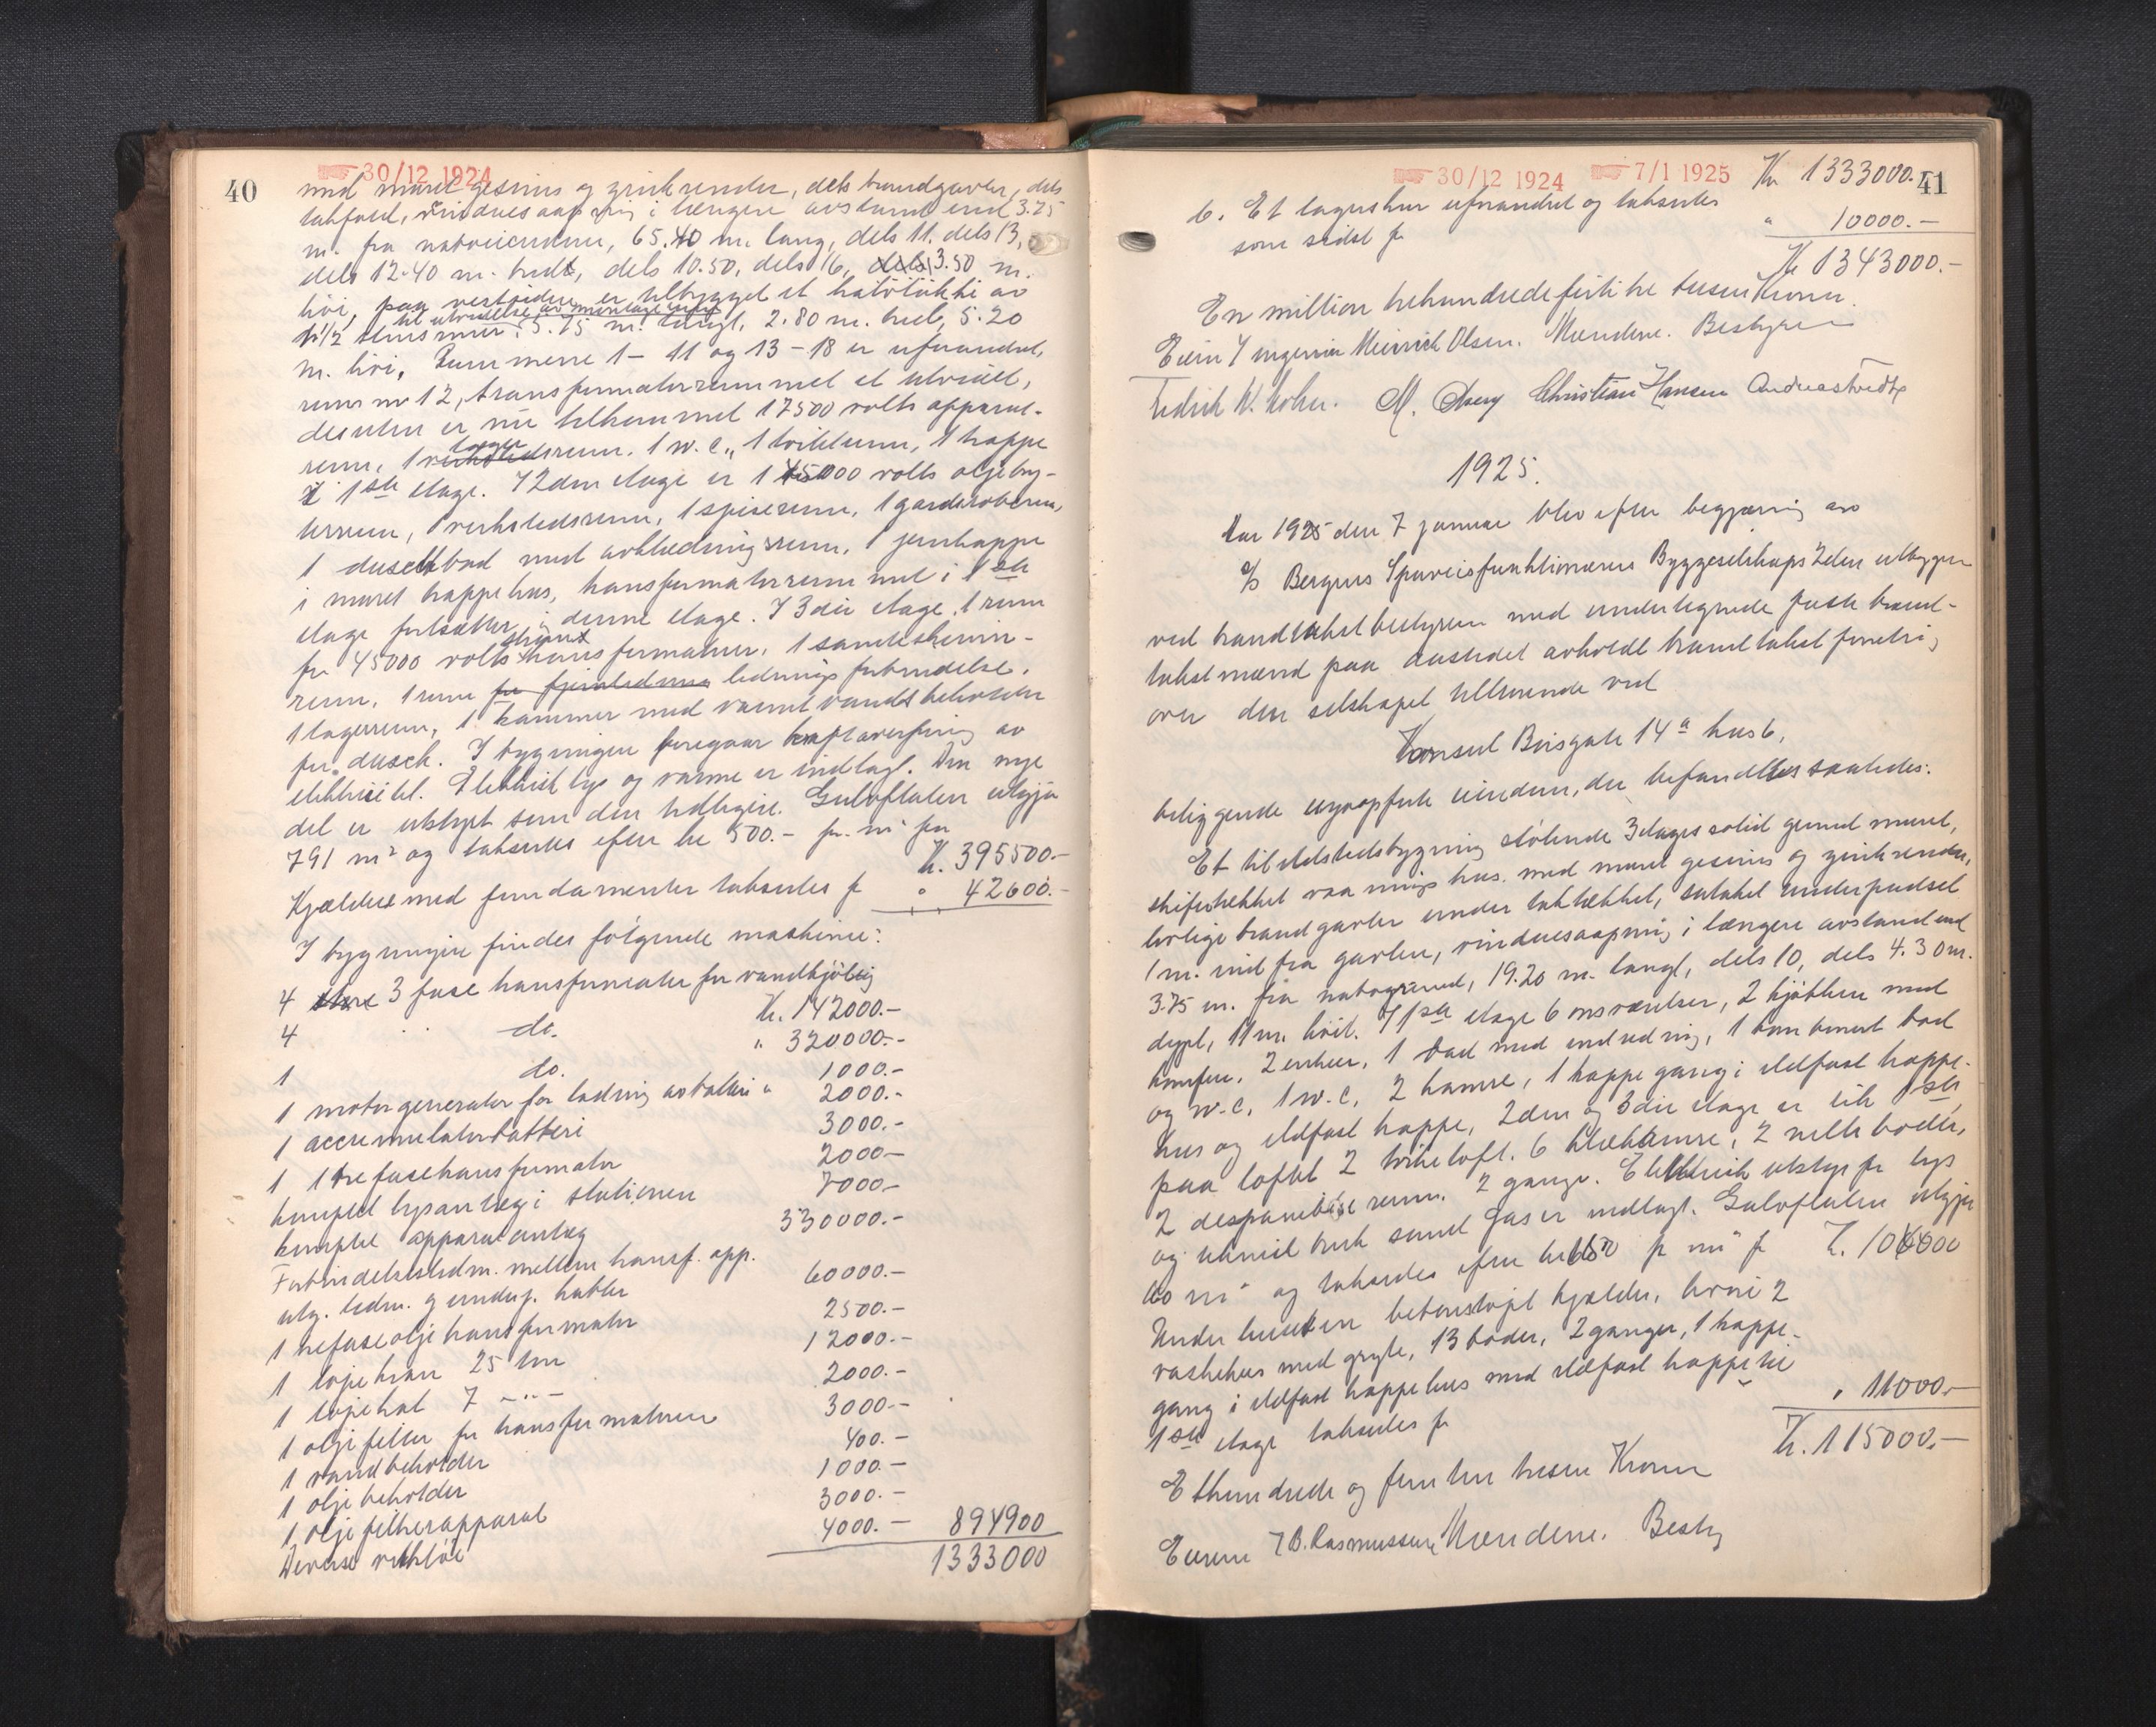 40
30/12 1924
med muret gesims og zinkrender, dels brandgavler, dels
takfald, vinduesaapning i længere avstand end 3.75
m. fra naboeiendom, 65.40 m. lang, dels 11. dels 13,
dels 12.40 m. bredt, dels 10.50, dels 16, dels 13.50 m.
høi, paa vestsiden er tilbygget et halvtækki av
til utvidelse av montage rum
1 1/2 stens mur. 5.75 m. langt, 2.80 m. bred, 5.20
m. høi. Rummene 1-11 og 13-18 er uforandret,
rum nr 12, transformatorrummet et utvidet,
desuten er nu tilkommet 17500 volts apparat-
lager
rum, 1 verkstedsrum, 1 w.c., 1 trykkrum, 1 trappe
i 1ste etage. I 2den etage er 1 45000 volts oljebry-
terrum, 1 verkstedsrum, 1 spiserum, 1 garderoberum,
1 duschbad med avklædningsrum, 1 jerntrappe
i muret trappehus, transformatorrummet i 1ste
etage fortsætter i denne etage. I 3die etage 1 rum
strøm
for 45000 volts transformatorer, 1 samleskinne-
rum, 1 rum for fjernledning lednings forbindelse.
1 lagerrum, 1 kammer med varmt vandsbeholder
for dusch. I bygningen foregaar kraftoverføring av
elektricitet. Elektrisk lys og varme er indlagt. Den nye
del er utstyrt som den tidligere. Gulvflaten utgjør
791 m² og takseres efter kr 500.- pr. m² for
Kr. 395500.-
Kjælder med fundamenter takseres for " 42600.-
I bygningen findes følgende maskiner:
4 store 3 fase transformator for vandkjøling
Kr. 142000.-
4 " do. " 320000.-
1 do. 1000.-
1 motorgenerator for ladning av batteri " 2000.-
1 accumulatorbatteri 3000.-
1 1 trefasetransformator 2000.-
komplet lysanlæg i stationen 7000.-
komplet apparatanlæg 330000.-
Forbindelsesledn. mellem transf. app.
utg. ledn. og underj. kabler 60000.-
1 trefase oljetransformator 2500.-
1 løpekran 25 ton 12000.-
1 løpekat 7 -"- 2000.-
1 oljefilter for transformatorene 3000.-
1 vandbeholder 400.-
1 oljebeholder 1000.-
1 oljefilterapparat 3000.-
Diverse verktøi 4000.- 894900
1333000
30/12 1924 7/1 1925
41
Kr 1333000.-
6. Et lagerskur uforandret og takseres
som sidst for " 10000.-
Kr 1343000.-
En million trehundredeførtitre tusen Kroner.
Eieren I ingeniør Meinich Olsen. Mændene. Bestyreren
Fredrik W. Kolm. M. Christian Hansen Andreas Tvedt
1925.
Aar 1925 den 7 januar blev efter begjæring av
A/S Bergens Sporveisfunktionærers Byggeselskaps Eder utbygger
ved brandtakstbestyreren med undertegnede faste brand-
takstmænd paa aastedet avholdt brandtakstforretning
over den selskapet tilhørende ved
Konsul Børsgate 14a hus 6,
beliggende nyopførte eiendom, der befandtes saaledes:
Et til ildstedsbygning støtende 3 etages solid grund muret,
skifertækket vaanings hus med muret gesims og zinkrender,
lovlige brandgavler under taktækket, sutaket underpudset
1 m. ind fra gavlen, vinduesaapning i længere avstand end
3.75 m. fra nabogrund, 19.20 m. langt, dels 10, dels 4.30 m.
dypt, 11 m. høit. I 1ste etage 6 onsværelser, 2 kjøkken med
komfur, 2 entreer, 1 bad med indredning, 1 kombinert bad
og w.c, 1 w.c, 2 kamre, 1 trappegang i ildfast trappe-
hus og ildfast trappe, 2den og 3die etage er lik 1ste,
paa loftet 2 tørkeloft. 6 klækamre, 2 rulleboder,
2 disponible rum. 2 gange. Elektrisk utstyr for lys
og teknisk bruk samt gas er indlagt. Gulvflaten utgjør
160 m² og takseres efter kr 650 pr m² for Kr. 104000
Under huset en betonstøpt kjælder, hvori 2
vaskehus med gryte, 13 boder, 2 ganger, 1 trappe-
gang i ildfast trappehus med ildfast trappe til
1ste etage takseres for " 11000.-
Kr. 115000.-
Ethundrede og femten tusen Kroner
Eieren I B. Rasmussen Mændene. Besty